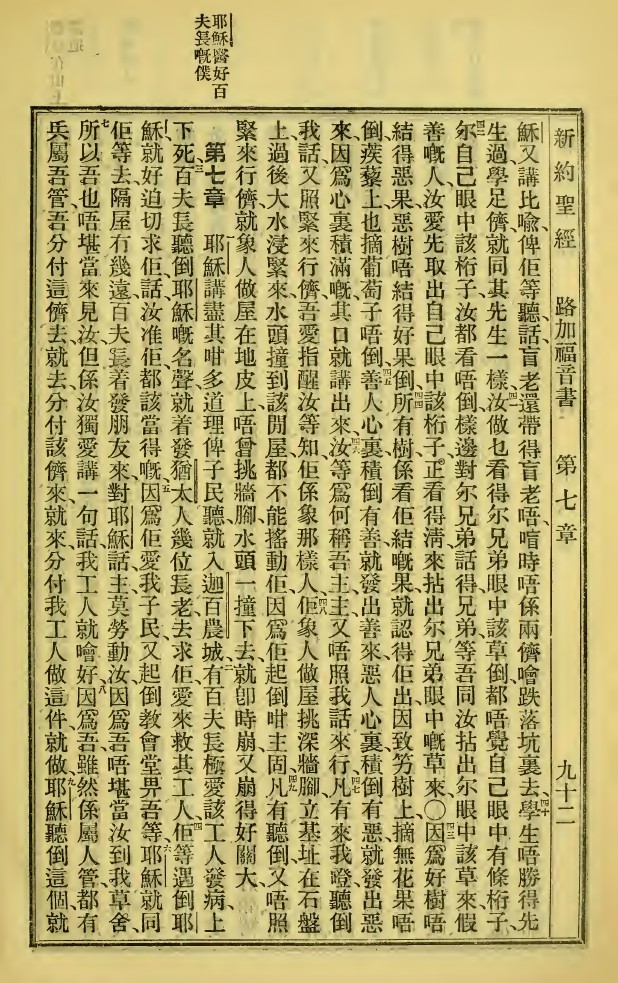 耶穌醫好百
夫長嘅僕
新約聖經 路加福音書 第七章 九十二
穌又講比喻、俾佢等聽話、盲老還帶得盲老唔喧時唔係兩儕噲跌落坑裏去、四十學生唔勝得先
生過、學足儕就同其先生一樣、四一汝做乜看得尔兄弟眼中該草倒、都唔覺自己眼中有條桁子、
四二尔自己眼中該桁子、汝都看唔倒、樣邊對尔兄弟話得、兄弟等吾同汝拈出尔眼中該草來、假
善嘅人、汝愛先取出自己眼中該桁子、正看得清來拈出尔兄弟眼中嘅草來、〇四三因爲好樹唔
結得惡果、惡樹唔結得好果倒、四四所有樹係看佢結嘅果、就認得佢出、因致竻樹上、摘無花果唔
倒、蒺藜上也摘葡萄子唔倒、四五善人心裏積倒有善、就發出善來、惡人心裏積倒有惡、就發出惡
來、因爲心裏積滿嘅、其口就講出來、四六汝等爲何稱吾主主、又唔照我話來行、四七凡有來我嶝聽倒
我話、又照緊來行儕、吾愛指醒汝等知佢係象那樣人、四八佢象人做屋、挑深牆腳、立基址在石盤
上、過後大水浸緊來、水頭撞到該閒屋、都不能搖動佢、因爲佢起倒咁主固、四九凡有聽倒、又唔照
緊來行儕、就象人做屋在地皮上、唔曾挑牆腳、水頭一撞下去、就卽時崩、又崩得好關大、
第七章 耶穌講盡其咁多道理、俾子民聽、就入迦百農城、二有百夫長極愛該工人、發病上
下死、三百夫長聽倒耶穌嘅名聲、就着發猶太人幾位長老去求佢、愛來救其工人、四佢等遇倒耶
穌、就好迫切求佢話、汝准佢都該當得嘅、五因爲佢愛我子民、又起倒教會堂畀吾等、六耶穌就同
佢等去、隔屋有幾遠、百夫長着發朋友來、對耶穌話、主莫勞動汝、因爲吾唔堪當汝到我草舍、
七所以吾也唔堪當來見汝、但係汝獨愛講一句話、我工人就噲好、八因爲吾雖然係屬人管、都有
兵屬吾管、吾分付這儕去就去、分付該儕來就來、分付我工人做這件就做、九耶穌聽倒這個、就